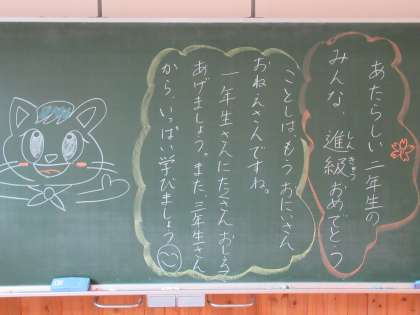 あたらしい二年生の
みんな、進級おめでとう
しんきゅう
ことしはもうおにいさん
おねえさんですね。
一年生さんにたくさんおしえて
あげましょう。また、三年生さん
から、いっぱい学びましょう